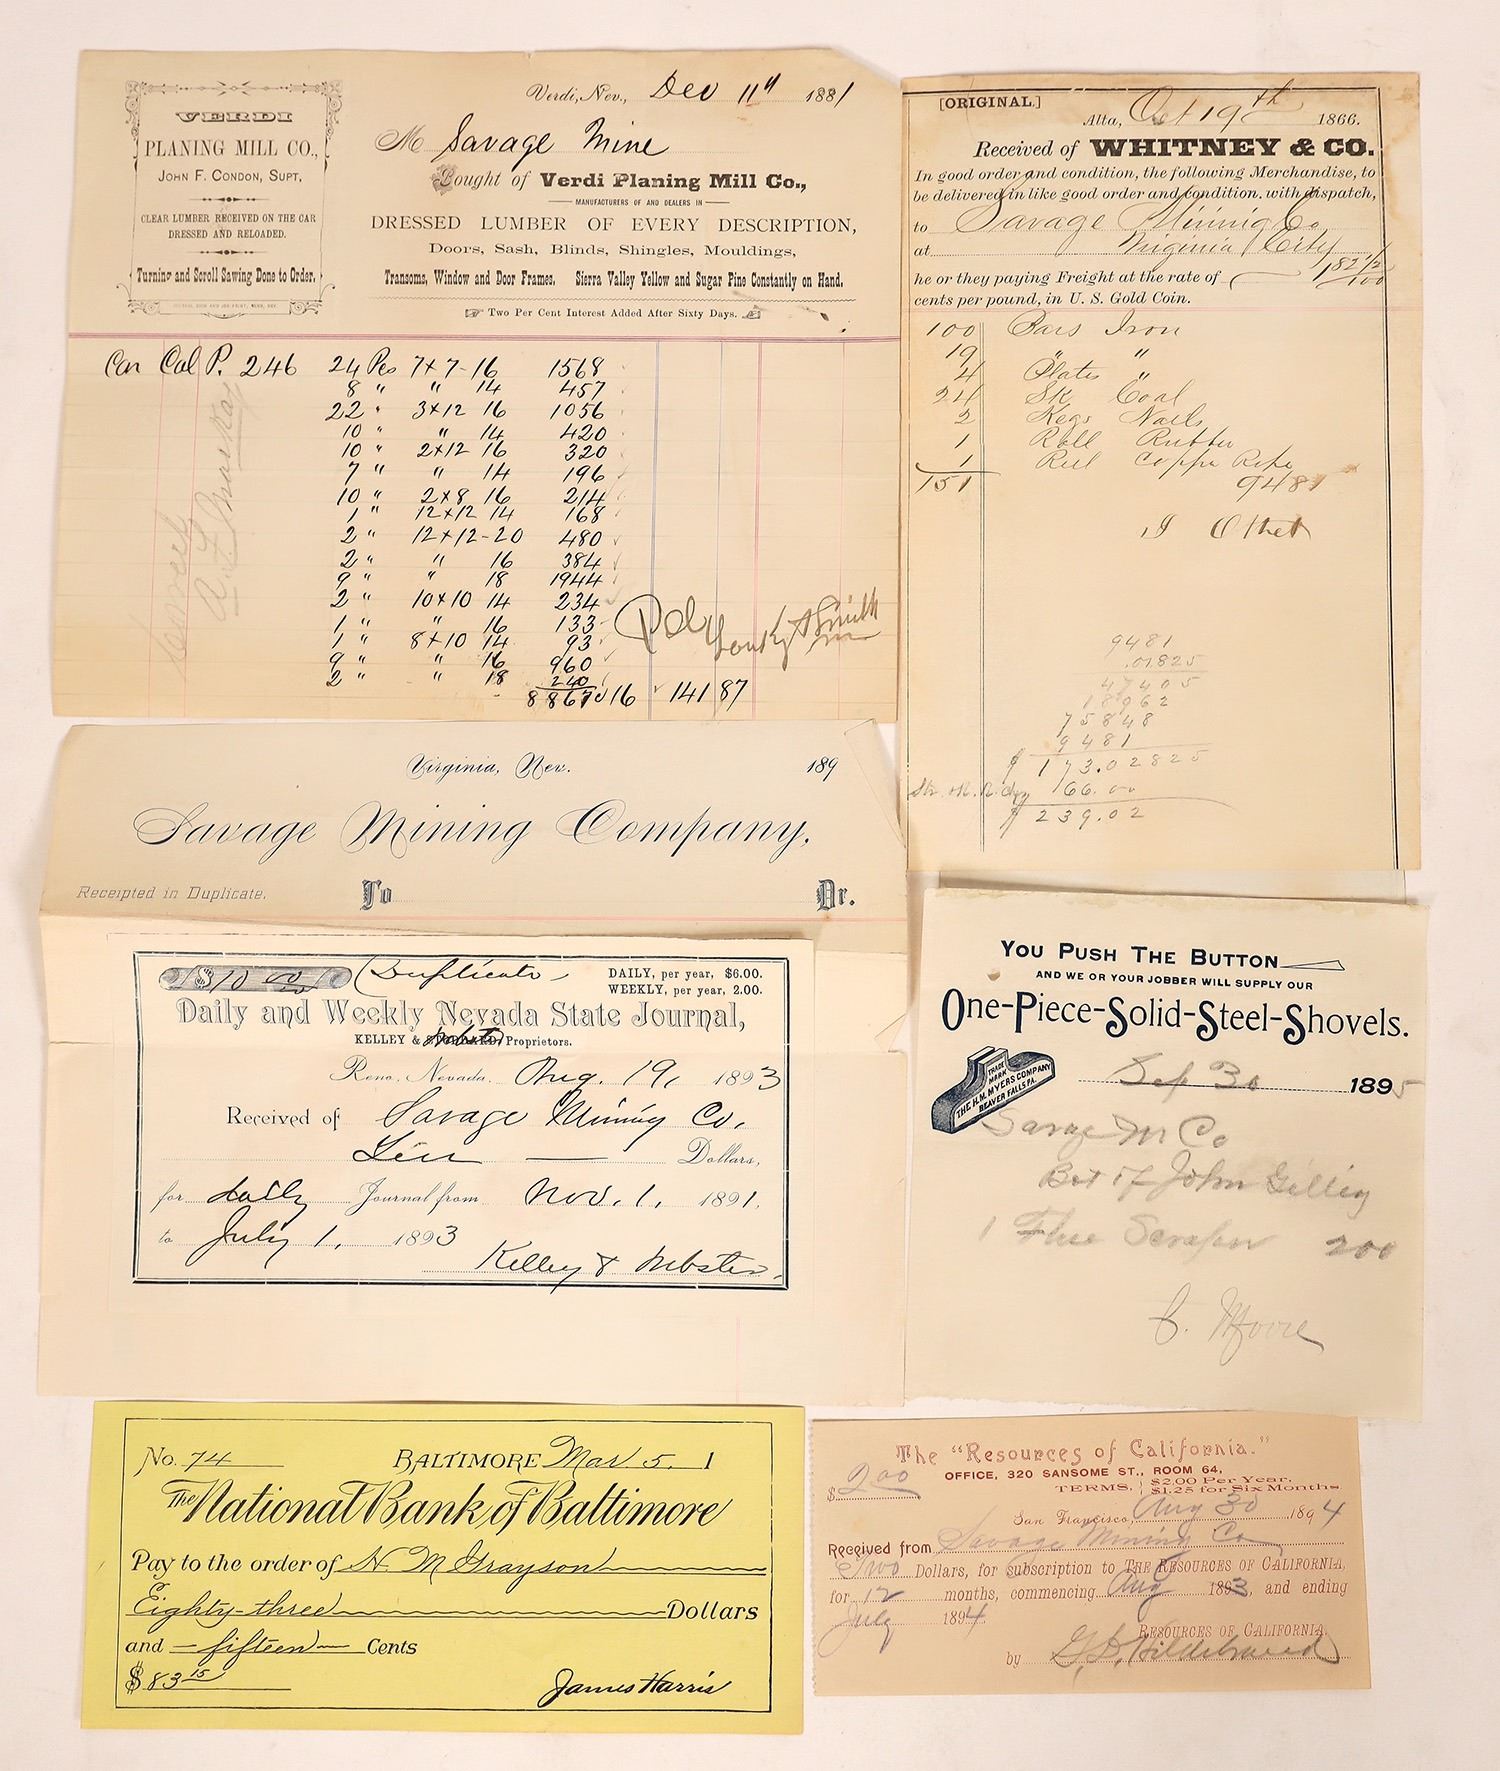 VERDI
PLANING MILL CO.,
JOHN F. CONDON, SUPT,
CLEAR LUMBER RECEIVED ON THE CAR
DRESSED AND RELOADED.
Turning and Scroll Sawing Done to Order.
Verdi, Nev., Dec 11th 1881
M Savage Mine
Bought of Verdi Planing Mill Co.,
MANUFACTURERS OF AND DEALERS IN
DRESSED LUMBER OF EVERY DESCRIPTION,
Doors, Sash, Blinds, Shingles, Mouldings,
Transoms, Window and Door Frames. Sierra Valley Yellow and Sugar Pine Constantly on Hand.
Two Per Cent Interest Added After Sixty Days.
Car Cal P. 246 24 Pcs 7x7-16 1568
8 " " 14 457
22 " 3x12 16 1056
10 " " 14 420
10 " 2x12 16 320
7 " " 14 196
10 " 2x8 16 214
1 " 12x12 14 168
2 " 12x12-20 480
2 " " 16 384
9 " " 18 1944
2 " 10x10 14 234
1 " " 16 133
1 " 8x10 14 93
9 " " 16 960
2 " " 18 240
8867 16 141 87
[ORIGINAL.]
Alta, Oct 19th 1866.
Received of WHITNEY & CO.
In good order and condition, the following Merchandise, to
be delivered in like good order and condition, with dispatch,
to Savage Mining Co
at Virginia City
he or they paying Freight at the rate of 1 82 1/2/100
cents per pound, in U. S. Gold Coin.
100 Bars Iron
19 " "
4 Plates "
24 Sk Coal
2 Kegs Nails
1 Roll Rubber
1 Reel Copper Rope
151 9481
9481
.01825
47405
18962
75848
9481
$ 173.02825
66.00
$ 239.02
Virginia, Nev. 189
Savage Mining Company,
Receipted in Duplicate. To Dr.
$10 00 Duplicate DAILY, per year, $6.00.
WEEKLY, per year, 2.00.
Daily and Weekly Nevada State Journal,
KELLEY & Webster Proprietors.
Reno, Nevada, Aug. 19, 1893
Received of Savage Mining Co.
Ten Dollars,
for daily Journal from Nov. 1, 1891,
to July 1, 1893
Kelley & Webster.
YOU PUSH THE BUTTON
AND WE OR YOUR JOBBER WILL SUPPLY OUR
One-Piece-Solid-Steel-Shovels.
TRADE MARK
THE H.M. MYERS COMPANY
BEAVER FALLS PA.
Sep 30 1895
Savage M Co
Bot of John Gilley
1 Flue Scraper 200
J. Moore
No. 74 BALTIMORE Mar 5. 1
The National Bank of Baltimore
Pay to the order of H. M Grayson
Eighty-three Dollars
and fifteen Cents
$83 15
James Harris
The "Resources of California."
OFFICE, 320 SANSOME ST., ROOM 64,
$2 00 TERMS, $2.00 Per Year.
$1.25 for Six Months
San Francisco, Aug 30 1894
Received from Savage Mining Co
Two Dollars, for subscription to THE RESOURCES OF CALIFORNIA,
for 12 months, commencing Aug 1893, and ending
July 1894
RESOURCES OF CALIFORNIA,
by G. D. Hildebrand